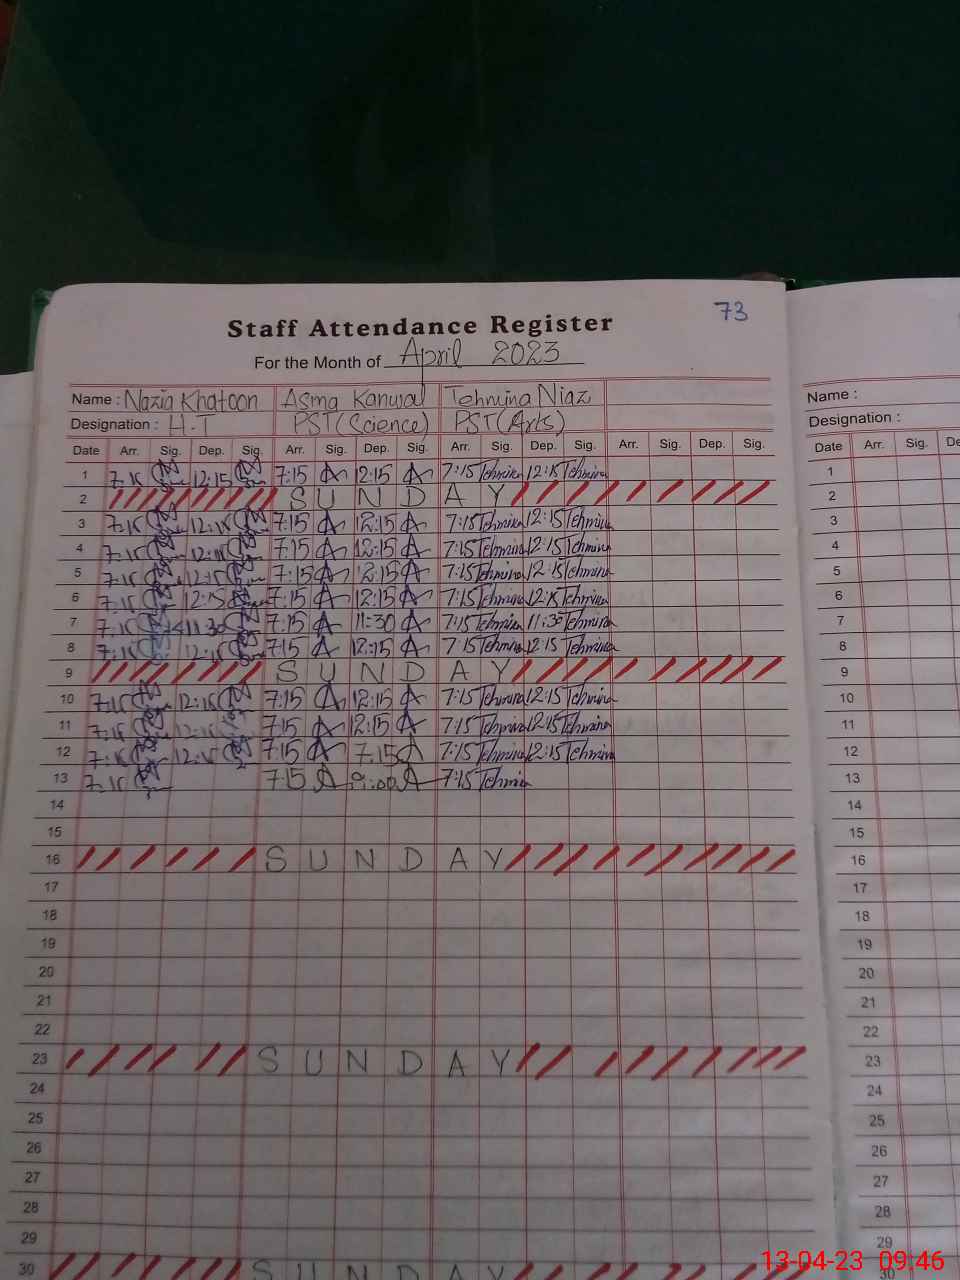 73
Staff Attendance Register
For the Month of April 2023
Name : Nazia Khatoon Asma Kanwal Tehmina Niaz
Designation : H.T PST(Science) PST(Arts)
Date Arr. Sig. Dep. Sig. Arr. Sig. Dep. Sig. Arr. Sig. Dep. Sig. Arr. Sig. Dep. Sig.
1 7:15 12:15 7:15 A 12:15 A 7:15 Tehmina 12:15 Tehmina
2 SUNDAY
3 7:15 12:15 7:15 A 12:15 A 7:15 Tehmina 12:15 Tehmina
4 7:15 12:15 7:15 A 12:15 A 7:15 Tehmina 12:15 Tehmina
5 7:15 12:15 7:15 A 12:15 A 7:15 Tehmina 12:15 Tehmina
6 7:15 12:15 7:15 A 12:15 A 7:15 Tehmina 12:15 Tehmina
7 7:15 11:30 7:15 A 11:30 A 7:15 Tehmina 11:30 Tehmina
8 7:15 12:15 7:15 A 12:15 A 7:15 Tehmina 12:15 Tehmina
9 SUNDAY
10 7:15 12:15 7:15 A 12:15 A 7:15 Tehmina 12:15 Tehmina
11 7:15 12:15 7:15 A 12:15 A 7:15 Tehmina 12:15 Tehmina
12 7:15 12:15 7:15 A 7:15 A 7:15 Tehmina 12:15 Tehmina
13 7:15 7:15 A 9:00 A 7:15 Tehmina
14
15
16 SUNDAY
17
18
19
20
21
22
23 SUNDAY
24
25
26
27
28
29
30 SUNDAY
Name :
Designation :
Date Arr. Sig.
1
2
3
4
5
6
7
8
9
10
11
12
13
14
15
16
17
18
19
20
21
22
23
24
25
26
27
28
29
30
13-04-23 09:46